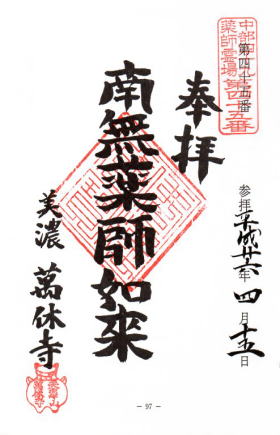 中部四十九
薬師霊場第四十五番
第四十五番
奉拝
参拝平成廿六年四月十五日
南無薬師如来
美濃 萬休寺
- 97 -